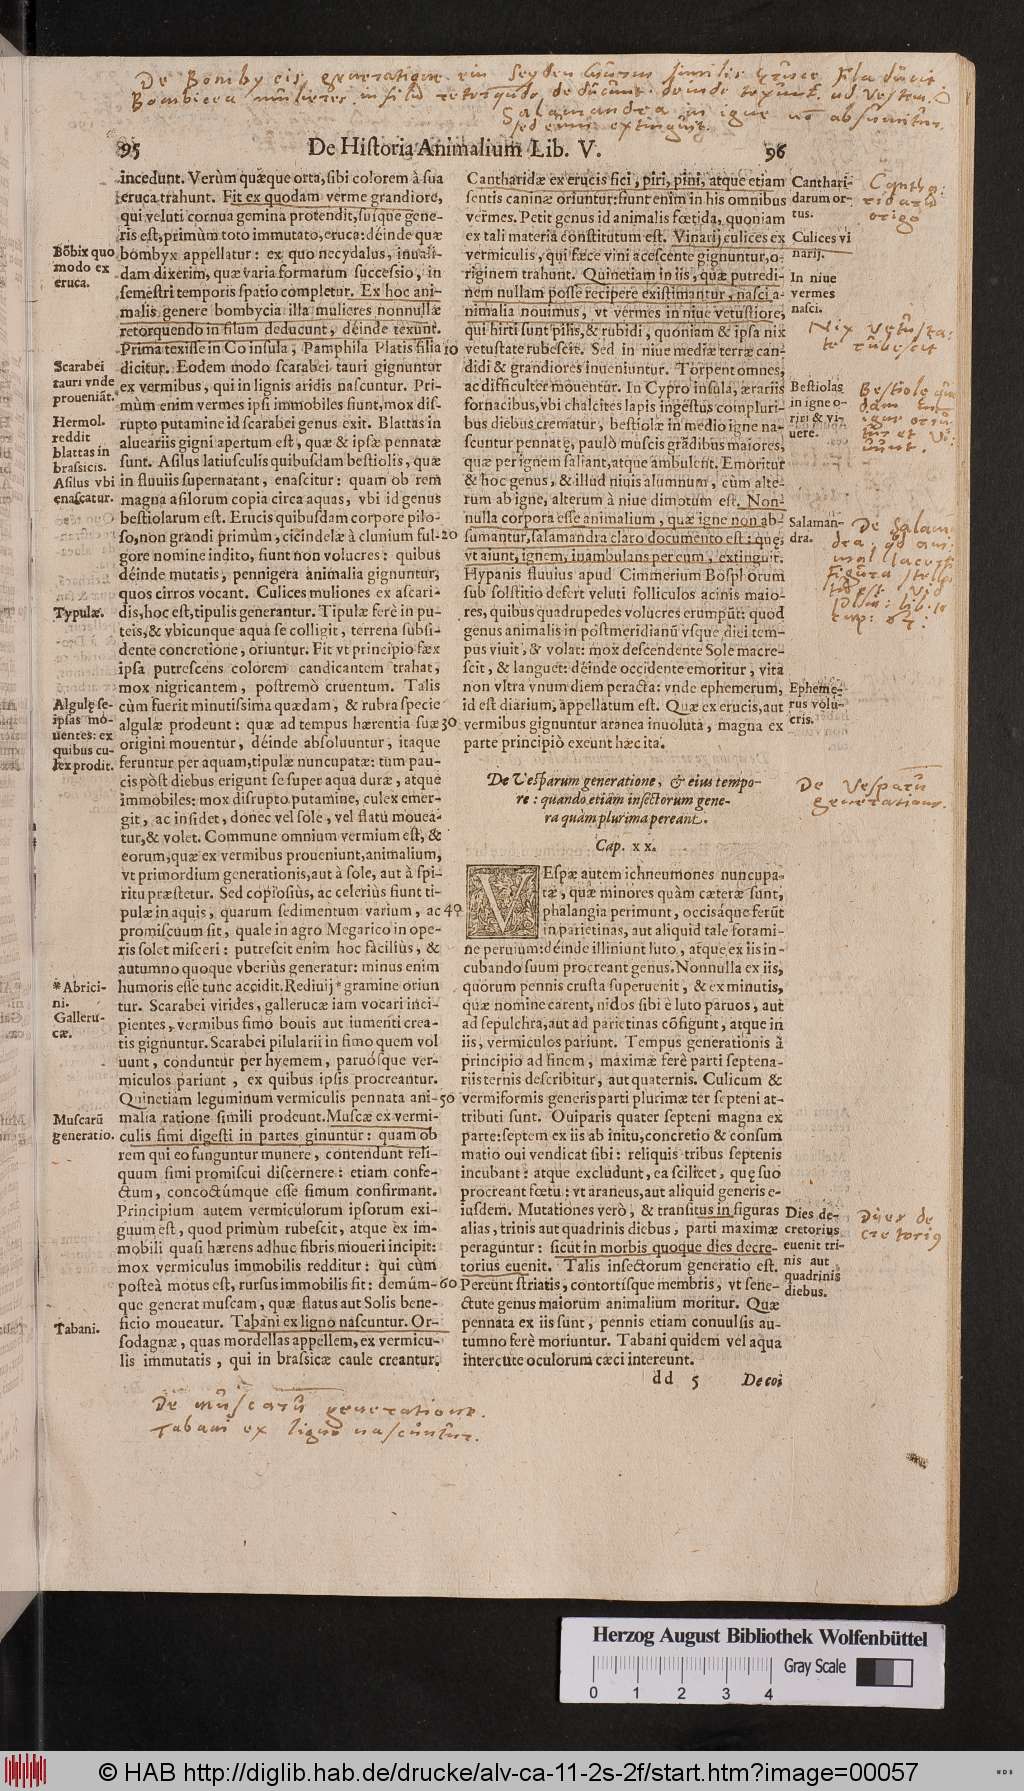 De Bombycis generatione ein Seyden
Bombicea mulieres in filum retorquendo deducunt. deinde texunt. ad vestem.
Salamandra in igne non absumitur.
sed eum extinguit.
95 De Historia Animalium Lib. V. 96
incedunt. Verùm quæque orta, sibi colorem à sua
eruca trahunt. Fit ex quodam verme grandiore,
qui veluti cornua gemina protendit, suique gene-
ris est, primùm toto immutato, eruca: déinde quæ
bombyx appellatur: ex quo necydalus, inuali-
dam dixerim, quæ varia formarum successio, in
semestri temporis spatio completur. Ex hoc ani-
malis genere bombycia illa mulieres nonnullæ
retorquendo in filum deducunt, déinde texunt.
Prima texisse in Co insula, Pamphila Platis filia 10
dicitur. Eodem modo scarabei tauri gignuntur
ex vermibus, qui in lignis aridis nascuntur. Pri-
mùm enim vermes ipsi immobiles fiunt, mox dis-
rupto putamine id scarabei genus exit. Blattas in
alueariis gigni apertum est, quæ & ipsæ pennatæ
sunt. Asilus latiusculis quibusdam bestiolis, quæ
in fluuiis supernatant, enascitur: quam ob rem
magna asilorum copia circa aquas, vbi id genus
bestiolarum est. Erucis quibusdam corpore pilo-
so, non grandi primùm, cicindelæ à clunium ful- 20
gore nomine indito, fiunt non volucres: quibus
déinde mutatis, pennigera animalia gignuntur,
quos cirros vocant. Culices muliones ex ascari-
dis, hoc est, tipulis generantur. Tipulæ ferè in pu-
teis, & vbicunque aqua se colligit, terrena subsi-
dente concretione, oriuntur. Fit vt principio fæx
ipsa putrescens colorem candicantem trahat,
mox nigricantem, postremò cruentum. Talis
cùm fuerit minutissima quædam, & rubra specie
algulæ prodeunt: quæ ad tempus hærentia suæ 30
origini mouentur, déinde absoluuntur, itaque
feruntur per aquam, tipulæ nuncupatæ: tùm pau-
cis pòst diebus erigunt se super aqua duræ, atque
immobiles: mox disrupto putamine, culex emer-
git, ac insidet, donec vel sole, vel flatu mouea-
tur, & volet. Commune omnium vermium est, &
eorum, quæ ex vermibus proueniunt, animalium,
vt primordium generationis, aut à sole, aut à spi-
ritu præstetur. Sed copiosiùs, ac celeriùs fiunt ti-
pulæ in aquis, quarum sedimentum varium, ac 40
promiscuum sit, quale in agro Megarico in ope-
ris solet misceri: putrescit enim hoc faciliùs, &
autumno quoque vberiùs generatur: minus enim
humoris esse tunc accidit. Rediuij * gramine oriun
tur. Scarabei virides, gallerucæ iam vocari inci-
pientes, vermibus fimo bouis aut iumenti crea-
tis gignuntur. Scarabei pilularii in fimo quem vol
uunt, conduntur per hyemem, paruósque ver-
miculos pariunt, ex quibus ipsis procreantur.
Quinetiam leguminum vermiculis pennata ani- 50
malia ratione simili prodeunt. Muscæ ex vermi-
culis fimi digesti in partes ginuntur: quam ob
rem qui eo funguntur munere, contendunt reli-
quum fimi promiscui discernere: etiam confe-
ctum, concoctúmque esse fimum confirmant.
Principium autem vermiculorum ipsorum exi-
guum est, quod primùm rubescit, atque ex im-
mobili quasi hærens adhuc fibris moueri incipit:
mox vermiculus immobilis redditur: qui cùm
posteà motus est, rursus immobilis fit: demùm- 60
que generat muscam, quæ flatus aut Solis bene-
ficio moueatur. Tabani ex ligno nascuntur. Or-
sodagnæ, quas mordellas appellem, ex vermicu-
lis immutatis, qui in brassicæ caule creantur.
Bõbix quo
modo ex
eruca.
Scarabei
tauri vnde
proueniãt.
Hermol.
reddit
blattas in
brassicis.
Asilus vbi
enascatur.
Typulæ.
Algulę se-
ipsas mo-
uentes: ex
quibus cu-
lex prodit.
* Abrici-
ni.
Galleru-
cæ.
Muscarũ
generatio.
Tabani.
De muscarũ generatione.
Tabani ex ligno nascuntur.
Cantharidæ ex erucis fici, piri, pini, atque etiam
sentis caninæ oriuntur: fiunt enim in his omnibus
vermes. Petit genus id animalis fœtida, quoniam
ex tali materia constitutum est. Vinarij culices ex
vermiculis, qui fæce vini acescente gignuntur, o-
riginem trahunt. Quinetiam in iis, quæ putredi-
nem nullam posse recipere existimantur, nasci a-
nimalia nouimus, vt vermes in niue vetustiore,
qui hirti sunt pilis, & rubidi, quoniam & ipsa nix
vetustate rubescit. Sed in niue mediæ terræ can-
didi & grandiores inueniuntur. Torpent omnes,
ac difficulter mouentur. In Cypro insula, ærariis
fornacibus, vbi chalcites lapis ingestus compluri-
bus diebus crematur, bestiolæ in medio igne na-
scuntur pennatę, paulò muscis grãdibus maiores,
quæ per ignem saliant, atque ambulent. Emoritur
& hoc genus, & illud niuis alumnum, cùm alte-
rum ab igne, alterum à niue dimotum est. Non-
nulla corpora esse animalium, quæ igne non ab-
sumantur, salamandra claro documento est: quę,
vt aiunt, ignem, inambulans per eum, extinguit.
Hypanis fluuius apud Cimmerium Bosphorum
sub solstitio defert veluti folliculos acinis maio-
res, quibus quadrupedes volucres erumpũt: quod
genus animalis in postmeridianũ vsque diei tem-
pus viuit, & volat: mox descendente Sole macre-
scit, & languet: déinde occidente emoritur, vita
non vltra vnum diem peracta: vnde ephemerum,
id est diarium, appellatum est. Quæ ex erucis, aut
vermibus gignuntur aranea inuoluta, magna ex
parte principiò exeunt hæc ita.
De Vesparum generatione, & eius tempo-
re: quando etiam insectorum gene-
ra quàm plurima pereant.
Cap. xx.
VEspæ autem ichneumones nuncupa-
tæ, quæ minores quàm cæteræ sunt,
phalangia perimunt, occisáque ferũt
in parietinas, aut aliquid tale forami-
ne peruium: déinde illiniunt luto, atque ex iis in-
cubando suum procreant genus. Nonnulla ex iis,
quorum pennis crusta superuenit, & ex minutis,
quæ nomine carent, nidos sibi è luto paruos, aut
ad sepulchra, aut ad parietinas cõfigunt, atque in
iis, vermiculos pariunt. Tempus generationis à
principio ad finem, maximæ ferè parti septena-
riis ternis describitur, aut quaternis. Culicum &
vermiformis generis parti plurimæ ter septeni at-
tributi sunt. Ouiparis quater septeni magna ex
parte: septem ex iis ab initu, concretio & consum
matio oui vendicat sibi: reliquis tribus septenis
incubant: atque excludunt, ea scilicet, quę suo
procreant fœtu: vt araneus, aut aliquid generis e-
iusdem. Mutationes verò, & transitus in figuras
alias, trinis aut quadrinis diebus, parti maximæ
peraguntur: sicut in morbis quoque dies decre-
torius euenit. Talis insectorum generatio est.
Pereunt striatis, contortísque membris, vt sene-
ctute genus maiorum animalium moritur. Quæ
pennata ex iis sunt, pennis etiam conuulsis au-
tumno ferè moriuntur. Tabani quidem vel aqua
intercute oculorum cæci intereunt.
dd 5 De coi
Canthari-
darum or-
tus.
Culices vi
narij.
In niue
vermes
nasci.
Bestiolas
in igne o-
riri & vi-
uere.
Salaman-
dra.
Epheme-
rus volu-
cris.
Dies de-
cretorius
euenit tri-
nis aut
quadrinis
diebus.
Cantha-
ridarũ
origo
Nix vetusta-
te rubescit
De Salam
dra
figura
Plin: lib. 10
cap: 64:
De Vesparũ
generatione.
Dies de
cretorius
Herzog August Bibliothek Wolfenbüttel
Gray Scale
0 1 2 3 4
© HAB http://diglib.hab.de/drucke/alv-ca-11-2s-2f/start.htm?image=00057